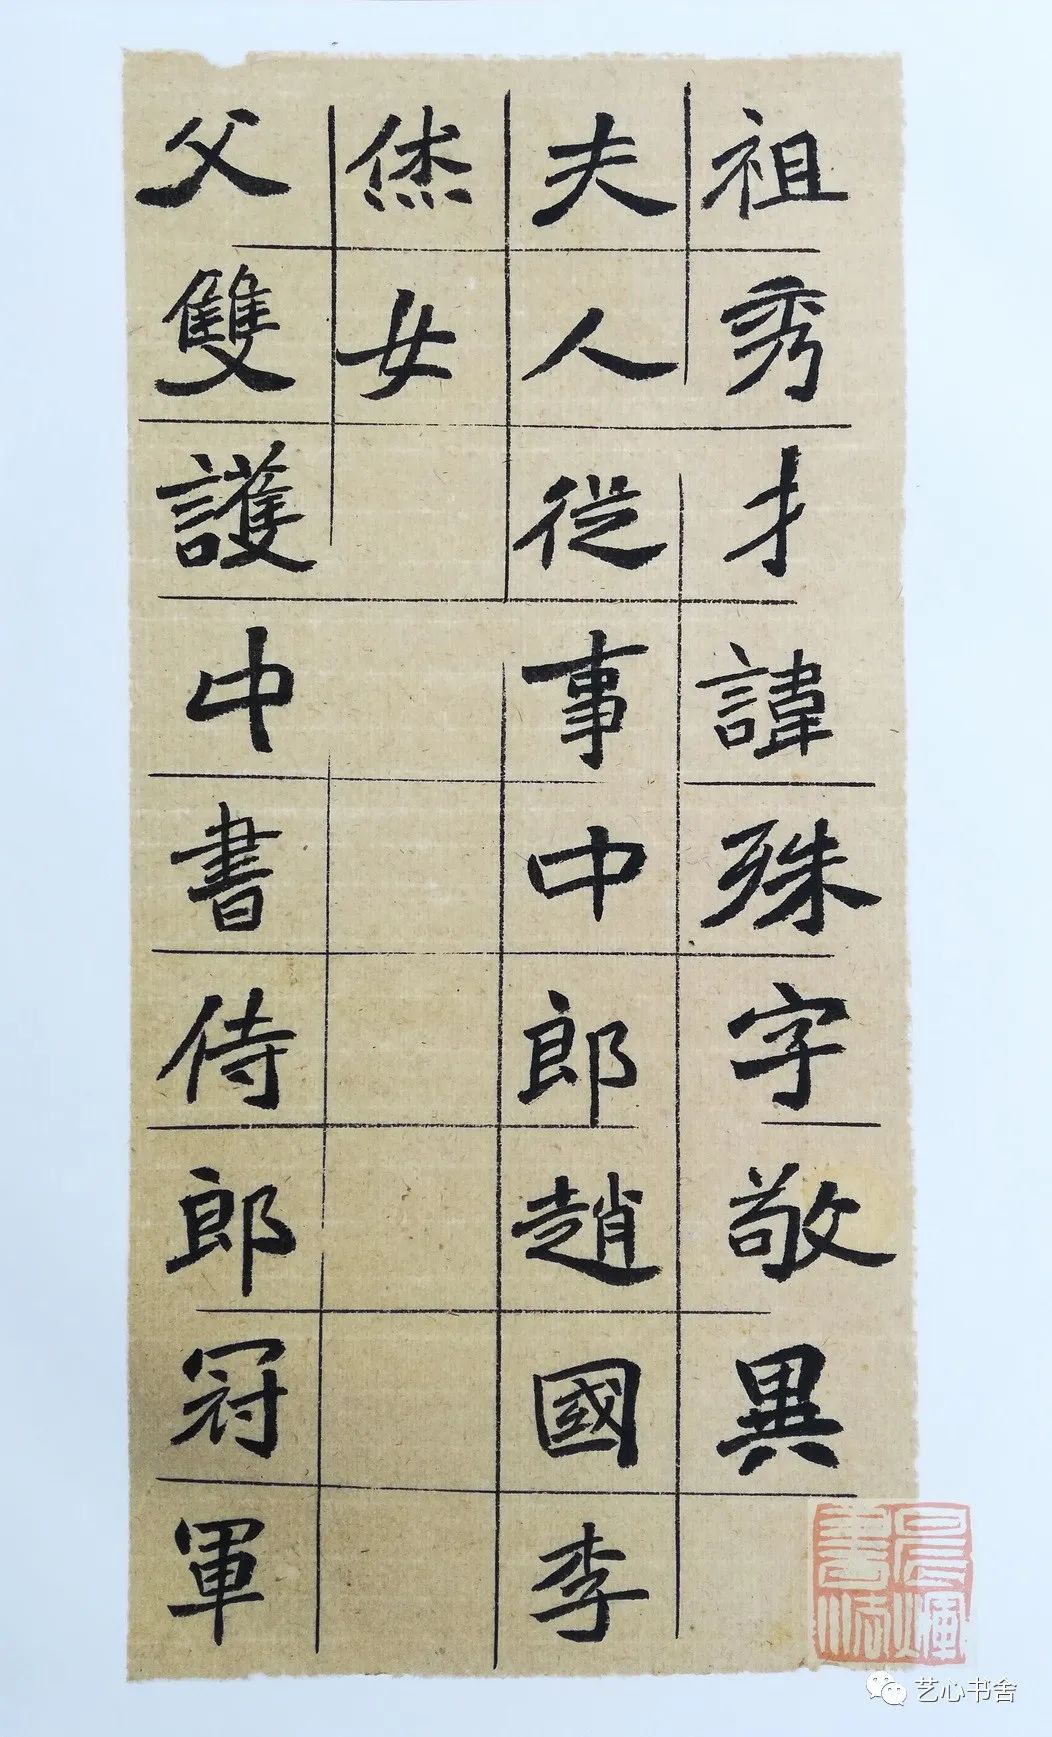 祖秀才諱殊字敬異
夫人從事中郎趙國李
烋女
父雙護中書侍郎冠軍
艺心书舍